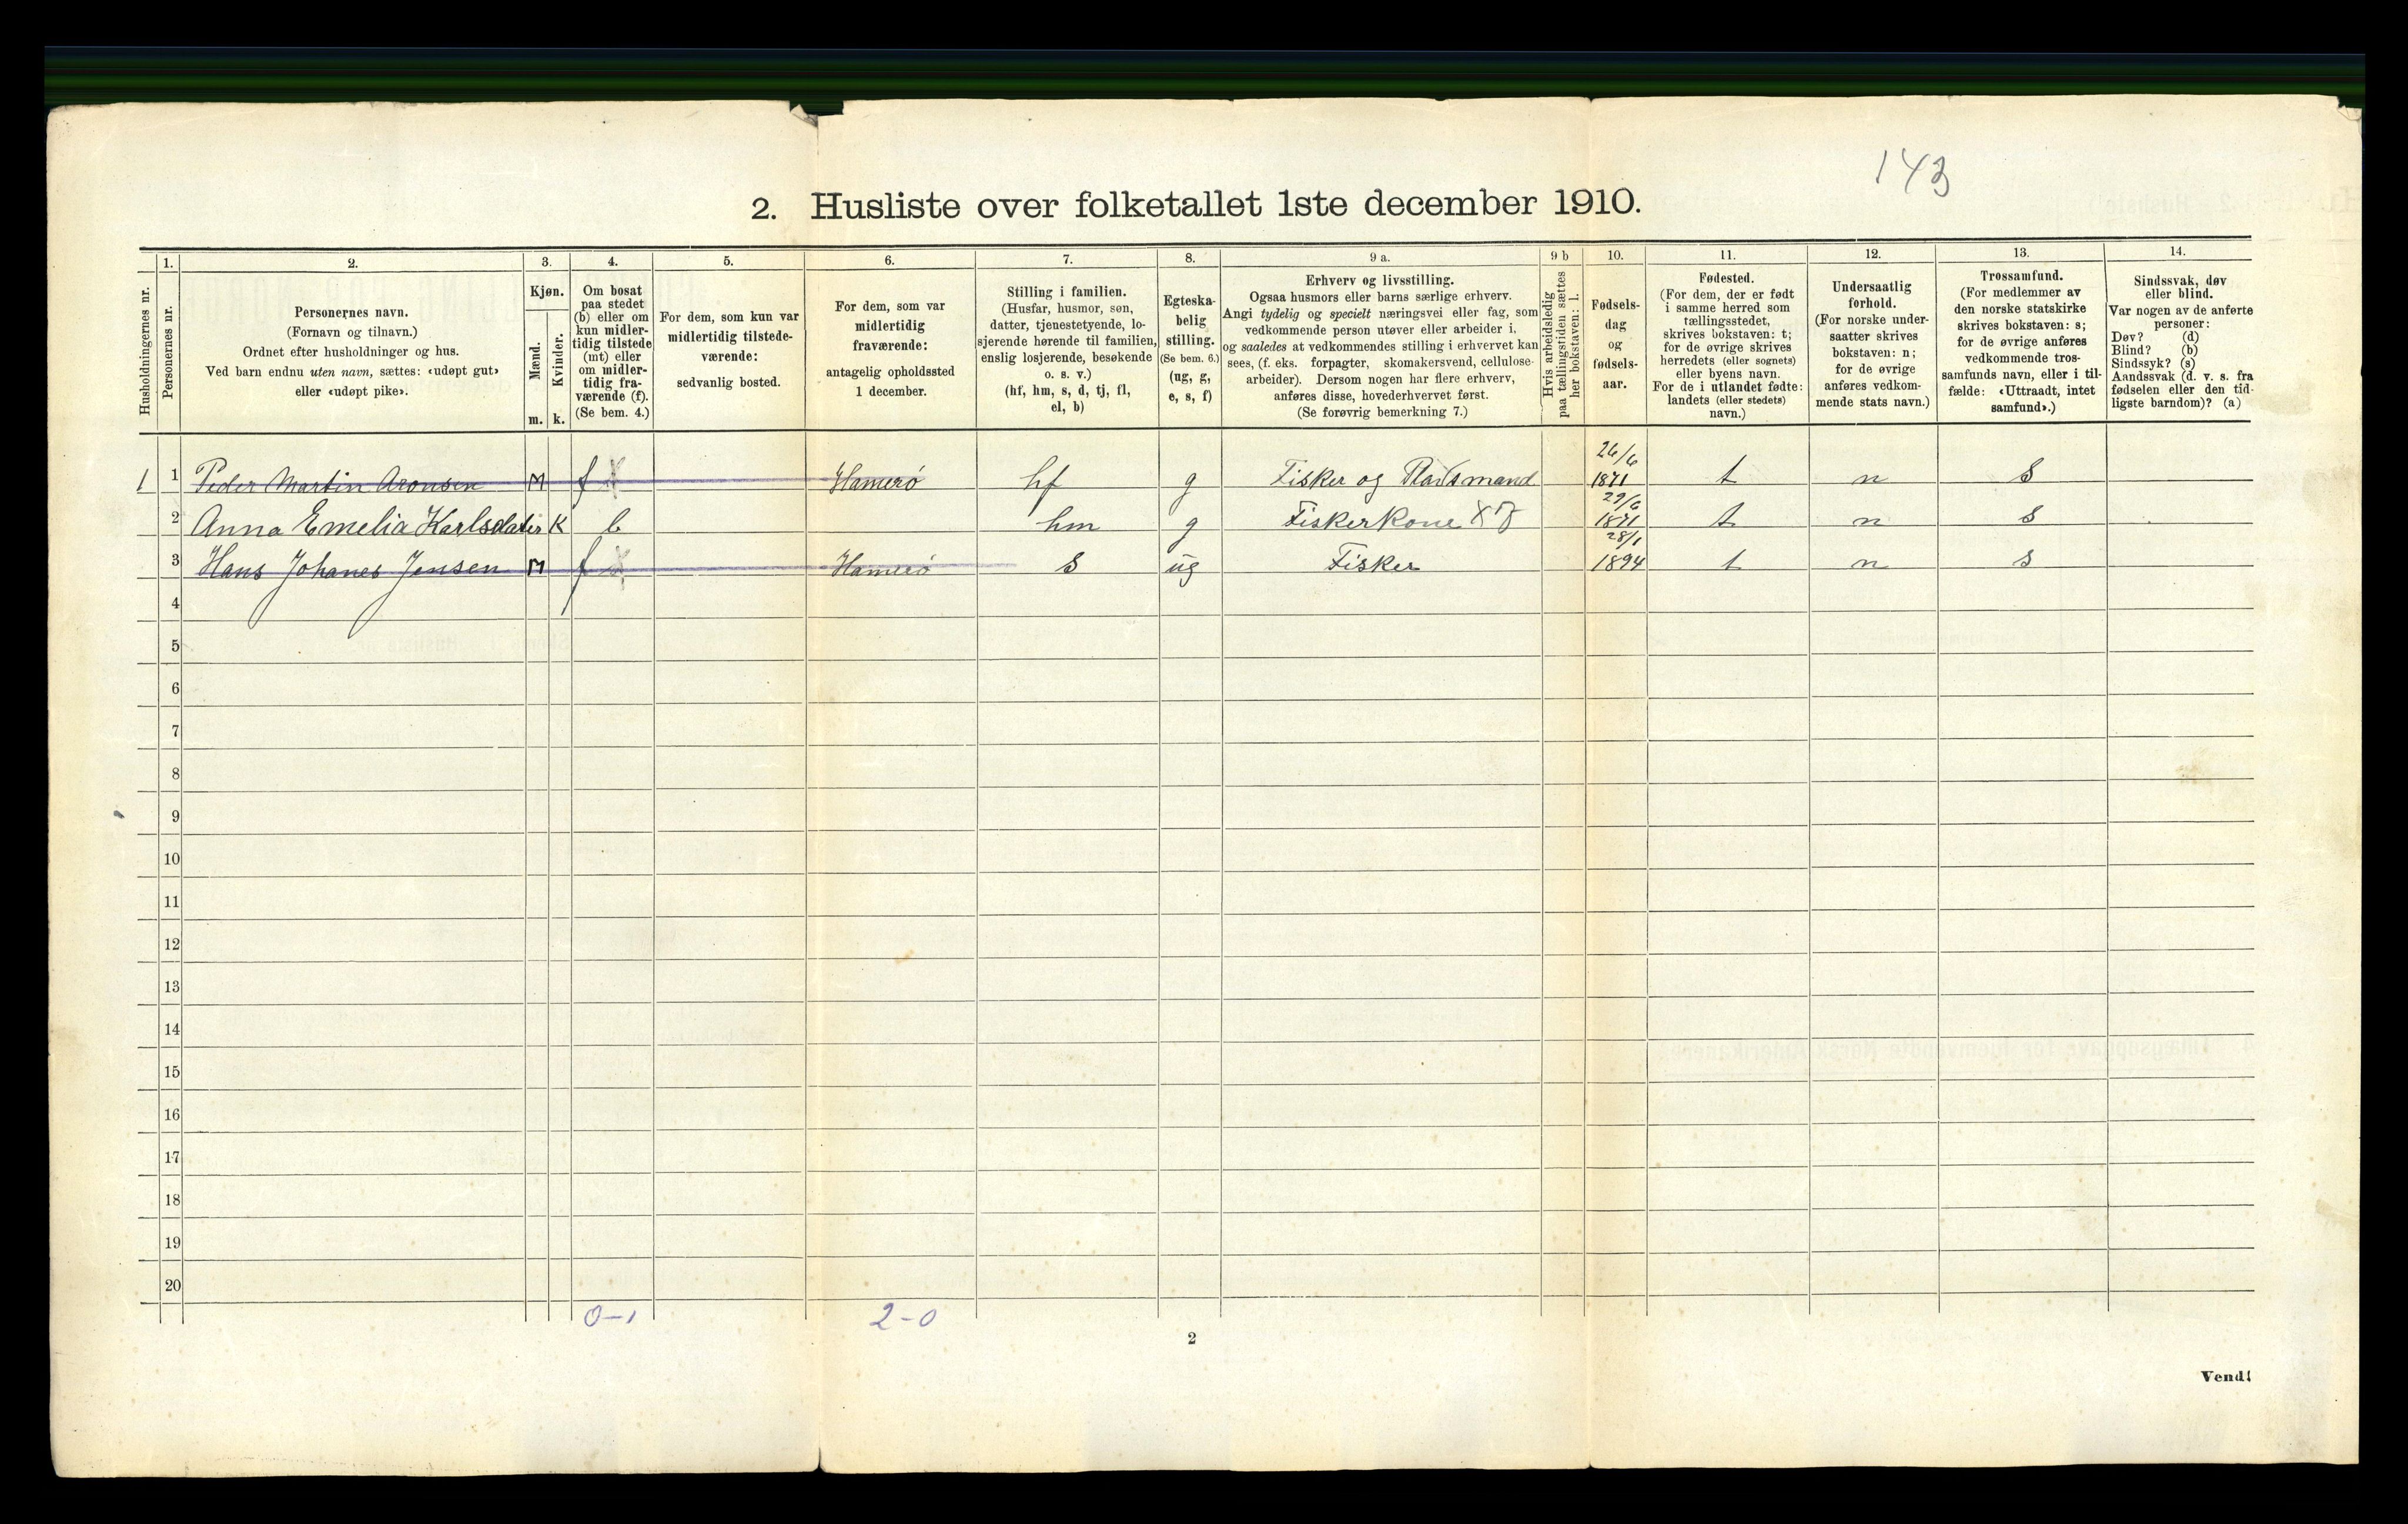 143
2. Husliste over folketallet 1ste december 1910.
Husholdningernes nr.
1.
Personernes nr.
2.
Personernes navn.
(Fornavn og tilnavn.)
Ordnet efter husholdninger og hus.
Ved barn endnu uten navn, sættes: «udøpt gut»
eller «udøpt pike».
3.
Kjøn.
Mænd.
Kvinder.
m. k.
4.
Om bosat
paa stedet
(b) eller om
kun midler-
tidig tilstede
(mt) eller
om midler-
tidig fra-
værende (f).
(Se bem. 4.)
5.
For dem, som kun var
midlertidig tilstede-
værende:
sedvanlig bosted.
6.
For dem, som var
midlertidig
fraværende:
antagelig opholdssted
1 december.
7.
Stilling i familien.
(Husfar, husmor, søn,
datter, tjenestetyende, lo-
sjerende hørende til familien,
enslig losjerende, besøkende
o. s. v.)
(hf, hm, s, d, tj, fl,
el, b)
8.
Egteska-
belig
stilling.
(Se bem. 6.)
(ug, g,
e, s, f)
9 a.
Erhverv og livsstilling.
Ogsaa husmors eller barns særlige erhverv.
Angi tydelig og specielt næringsvei eller fag, som
vedkommende person utøver eller arbeider i,
og saaledes at vedkommendes stilling i erhvervet kan
sees, (f. eks. forpagter, skomakersvend, cellulose-
arbeider). Dersom nogen har flere erhverv,
anføres disse, hovederhvervet først.
(Se forøvrig bemerkning 7.)
9 b
Hvis arbeidsledig
paa tællingstiden sættes
her bokstaven: l.
10.
Fødsels-
dag
og
fødsels-
aar.
11.
Fødested.
(For dem, der er født
i samme herred som
tællingsstedet,
skrives bokstaven: t;
for de øvrige skrives
herredets (eller sognets)
eller byens navn.
For de i utlandet fødte:
landets (eller stedets)
navn.)
12.
Undersaatlig
forhold.
(For norske under-
saatter skrives
bokstaven: n;
for de øvrige
anføres vedkom-
mende stats navn.)
13.
Trossamfund.
(For medlemmer av
den norske statskirke
skrives bokstaven: s;
for de øvrige anføres
vedkommende tros-
samfunds navn, eller i til-
fælde: «Uttraadt, intet
samfund».)
14.
Sindssvak, døv
eller blind.
Var nogen av de anførte
personer:
Døv? (d)
Blind? (b)
Sindssyk? (s)
Aandssvak (d. v. s. fra
fødselen eller den tid-
ligste barndom)? (a)
1 1 Peder Martin Aronsen M f Hamerø hf g Fisker og Pladsmand 26/6 1871 t n S
2 Anna Emelia Karlsdater K b hm g Fiskerkone 29/6 1871 t n S
3 Hans Johanes Jensen M f Hamerø S ug Fisker 28/1 1894 t n s
4
5
6
7
8
9
10
11
12
13
14
15
16
17
18
19
20
0-1 2-0
2
Vend!